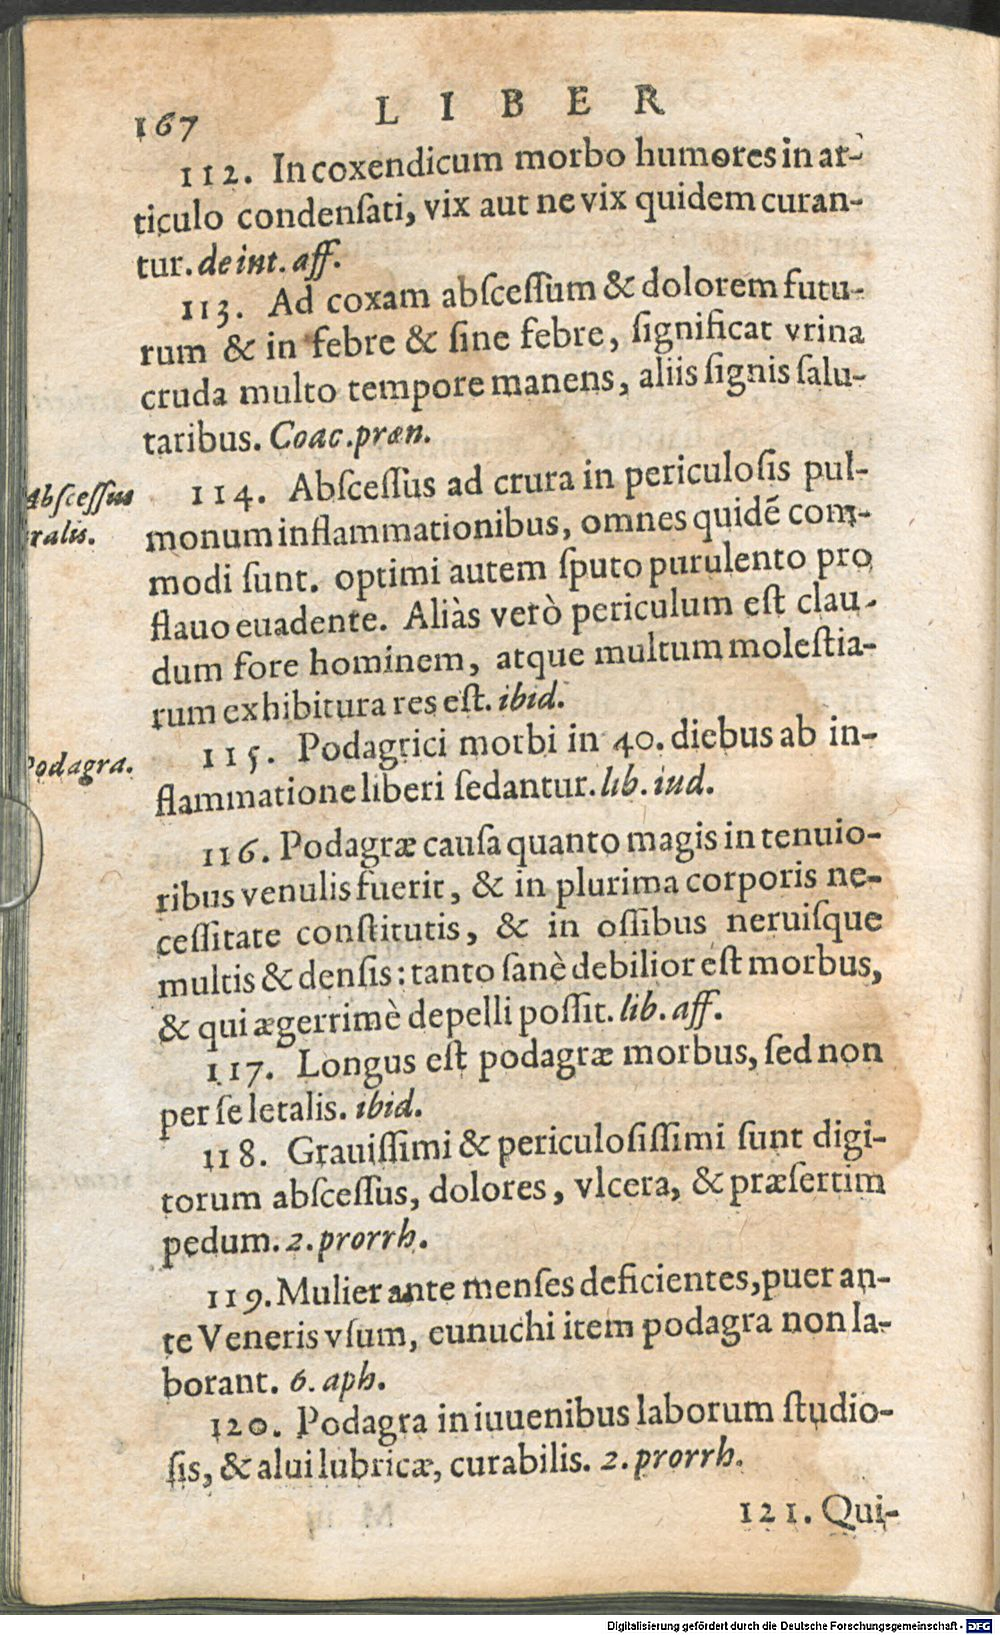 167
LIBER
112. In coxendicum morbo humores in ar-
ticulo condenſati, vix aut ne vix quidem curan-
tur. de int. aff.
113. Ad coxam abſceſſum & dolorem futu-
rum & in febre & ſine febre, ſignificat vrina
cruda multo tempore manens, aliis ſignis ſalu-
taribus. Coac. præn.
Abſceſſus
ralis.
114. Abſceſſus ad crura in periculoſis pul-
monum inflammationibus, omnes quidē com-
modi ſunt. optimi autem ſputo purulento pro
flauo euadente. Aliàs verò periculum eſt clau-
dum fore hominem, atque multum moleſtia-
rum exhibitura res eſt. ibid.
Podagra.
115. Podagrici morbi in 40. diebus ab in-
flammatione liberi ſedantur. lib. iud.
116. Podagræ cauſa quanto magis in tenuio-
ribus venulis fuerit, & in plurima corporis ne-
ceſſitate conſtitutis, & in oſſibus neruiſque
multis & denſis: tanto ſanè debilior eſt morbus,
& qui ægerrimè depelli poſſit. lib. aff.
117. Longus eſt podagræ morbus, ſed non
per ſe letalis. ibid.
118. Grauiſſimi & periculoſiſſimi ſunt digi-
torum abſceſſus, dolores, vlcera, & præſertim
pedum. 2. prorrh.
119. Mulier ante menſes deficientes, puer an-
te Veneris vſum, eunuchi item podagra non la-
borant. 6. aph.
120. Podagra in iuuenibus laborum ſtudio-
ſis, & alui lubricæ, curabilis. 2. prorrh.
121. Qui-
Digitalisierung gefördert durch die Deutsche Forschungsgemeinschaft - DFG